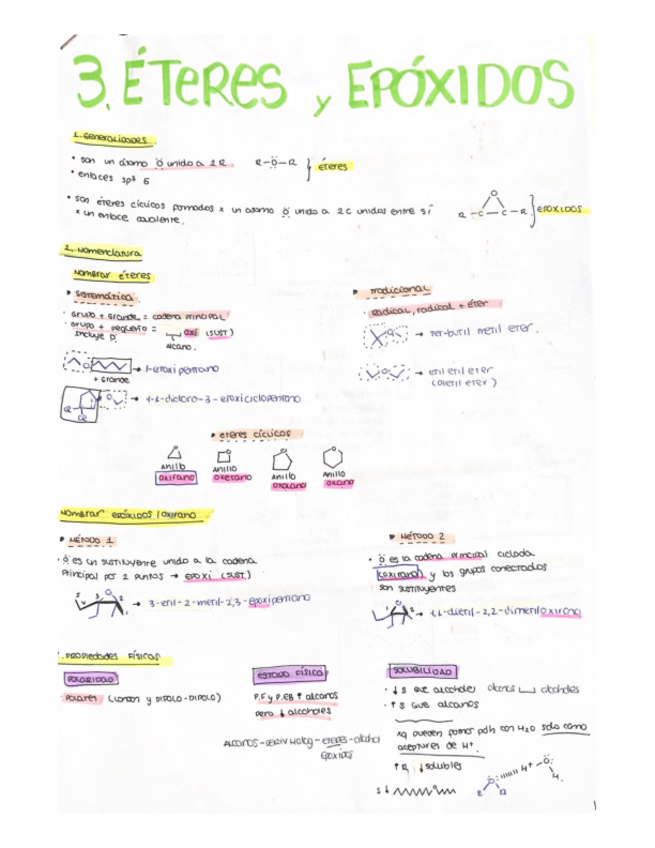 3. ÉTERES y EPÓXIDOS
1. Generalidades.
• son un átomo Ö unido a 2R
R-Ö-R } ÉTERES
• enlaces sp³ 6
• son éteres cícuicos formados x un átomo Ö unido a 2C unidos entre sí
x un enlace covalente.
O
R-C-C-R } EPOXIDOS
2. Nomenclatura
Nombrar éteres
▸ Sistemática.
· Grupo + Grande = cadena principal
· Grupo + pequeño = oxi (SUST)
Incluye p
alcano.
→ 1-etoxi pentano
+ Grande
→ 1-1-dicloro-3-etoxiciclopentano
▸ Tradicional
· Radical, radical + éter
→ Ter-butil metil eter.
→ etil etil eter
(dietil eter)
▸ eteres cícuicos
Anillo oxirano
Anillo oxetano
Anillo oxolano
Anillo oxano
Nombrar epóxidos / oxirano
▸ MÉTODO 1
· Ö es un sustituyente unido a la cadena
principal por 2 puntos → epoxi (SUST)
→ 3-etil-2-metil-2,3-epoxipentano
▸ MÉTODO 2
· Ö es la cadena principal ciclada
(oxirano) y los grupos conectados
son sustituyentes
→ 1,1-dietil-2,2-dimetiloxirano
PROPIEDADES FÍSICAS
POLARIDAD
· Polares (London y DIPOLO-DIPOLO)
ESTADO FÍSICO
P.F y P.EB ↑ alcanos
pero ↓ alcoholes
ALCANOS-DERIV HALOG-ETERES-alcohol
EPOXIDOS
SOLUBILIDAD
· ↓ S que alcoholes
alcoholes
· ↑ S que alcanos
pueden formar pdh con H2O solo como
aceptores de H⁺.
↑ R, ↓ solubles
S ↓
R O R H⁺ - O H
1